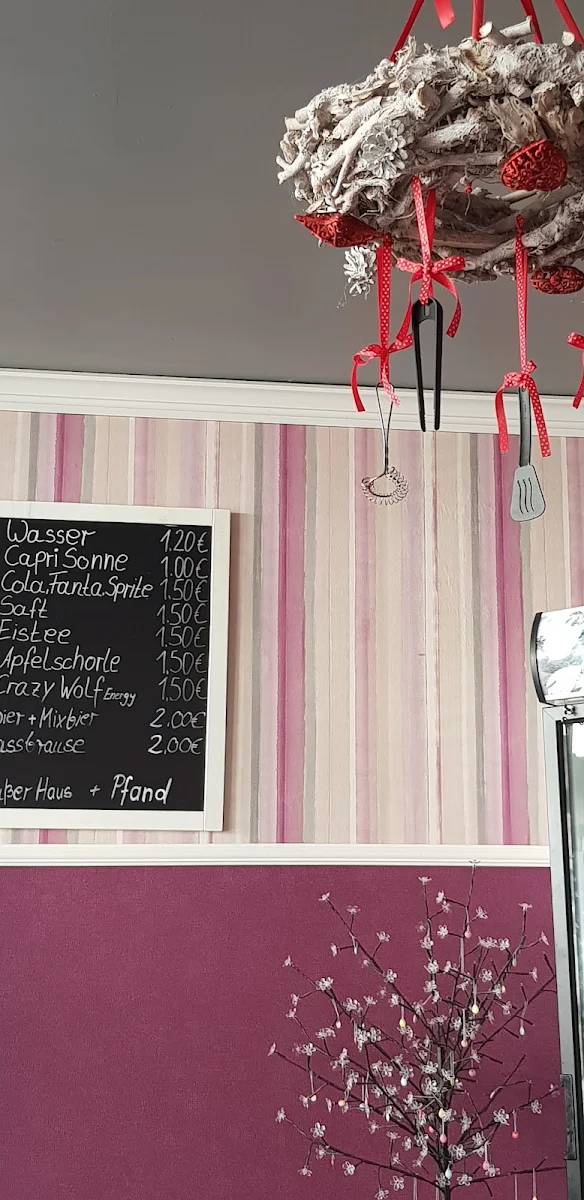 Wasser 1.20€
Capri Sonne 1.00€
Cola, Fanta, Sprite 1.50€
Saft 1.50€
Eistee 1.50€
Apfelschorle 1.50€
Crazy Wolf Energy 1.50€
Bier + Mixbier 2.00€
assbrause 2,00€
ußer Haus + Pfand